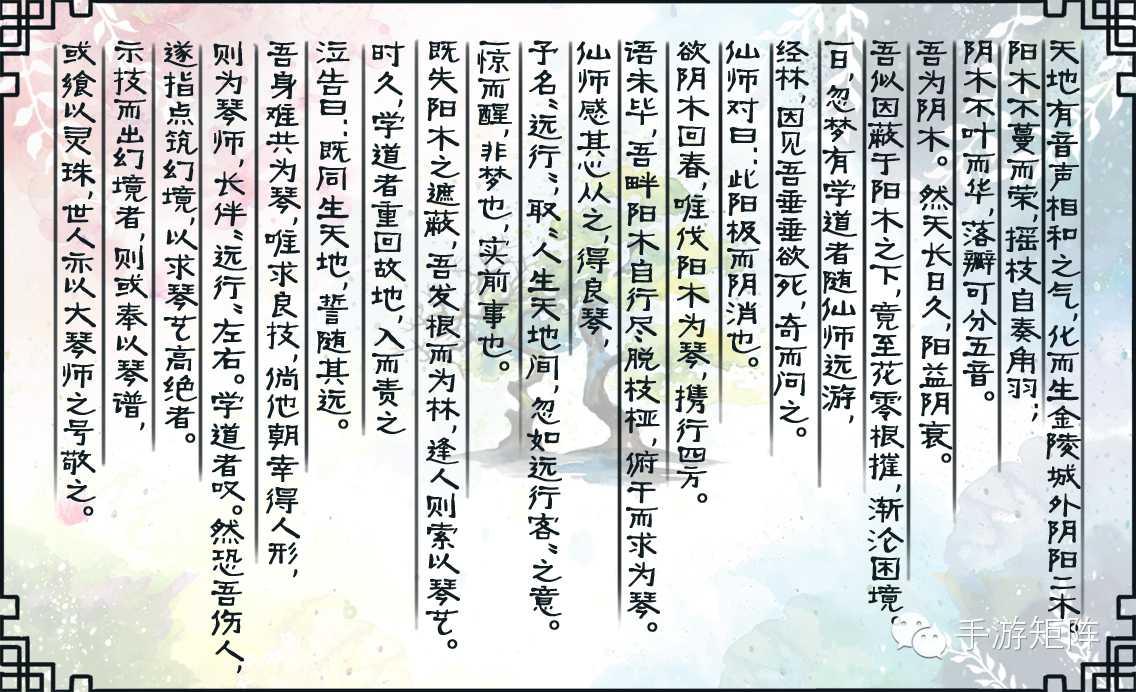 天地有音声相和之气，化而生金陵城外阴阳二木。
阳木不蔓而荣，摇枝自奏角羽；
阴木不叶而华，落瓣可分五音。
吾为阴木。然天长日久，阳益阴衰。
吾似因蔽于阳木之下，竟至花零根摧，渐沦困境。
一日，忽梦有学道者随仙师远游，
经林，因见吾垂垂欲死，奇而问之。
仙师对曰：此阳极而阴消也。
欲阴木回春，唯伐阳木为琴，携行四方。
语未毕，吾畔阳木自行尽脱枝桠，俯干而求为琴。
仙师感其心从之，得良琴，
予名“远行”，取“人生天地间，忽如远行客”之意。
惊而醒，非梦也，实前事也。
既失阳木之遮蔽，吾发根而为林，逢人则索以琴艺。
时久，学道者重回故地，入而责之
泣告曰：既同生天地，誓随其远。
吾身难共为琴，唯求良技，倘他朝幸得人形，
则为琴师，长伴“远行”左右。学道者叹。然恐吾伤人，
遂指点筑幻境，以求琴艺高绝者。
示技而出幻境者，则或奉以琴谱，
或飨以灵珠，世人亦以大琴师之号敬之。
手游矩阵